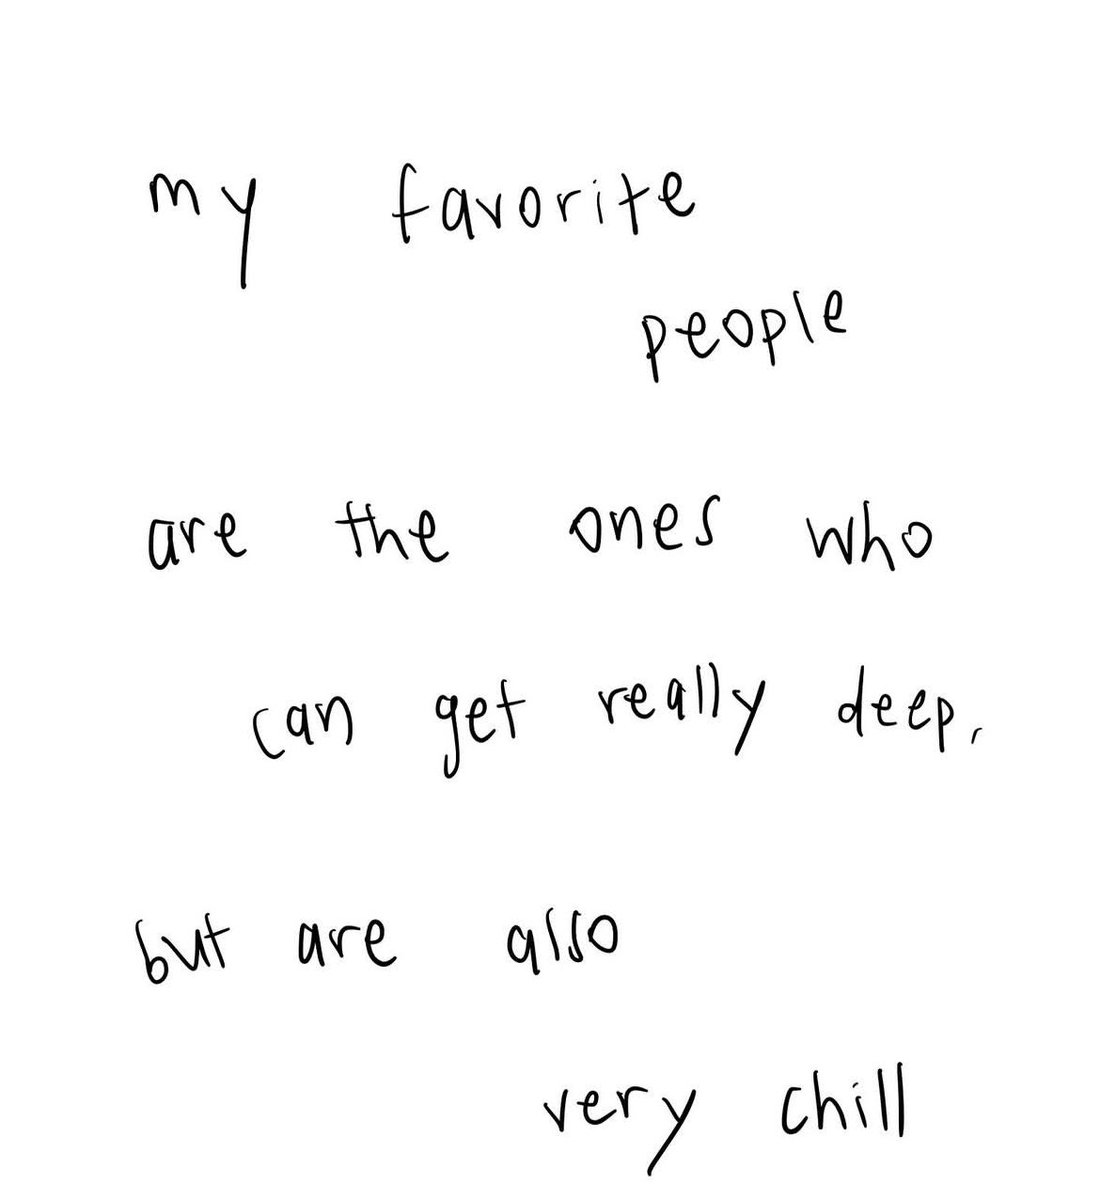 my favorite
people
are the ones who
can get really deep,
but are also
very chill